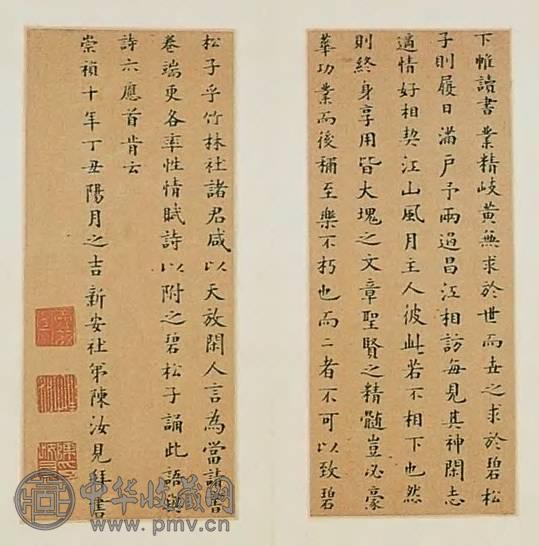 下帷讀書業精岐黃無求於世而世之求於碧松
子則履日滿戶予兩過昌江相訪每見其神閑志
適情好相契江山風月主人彼此若不相下也然
則終身享用皆大塊之文章聖賢之精髓豈必豪
華功業而後稱至樂不朽也而二者不可以致碧
松子乎竹林社諸君咸以天放閑人言為當請書
卷端更各率性情賦詩以附之碧松子誦此語與
詩六應首肯云
崇禎十年丁丑陽月之吉新安社弟陳汝見拜書
中华收藏网
www.pmv.cn